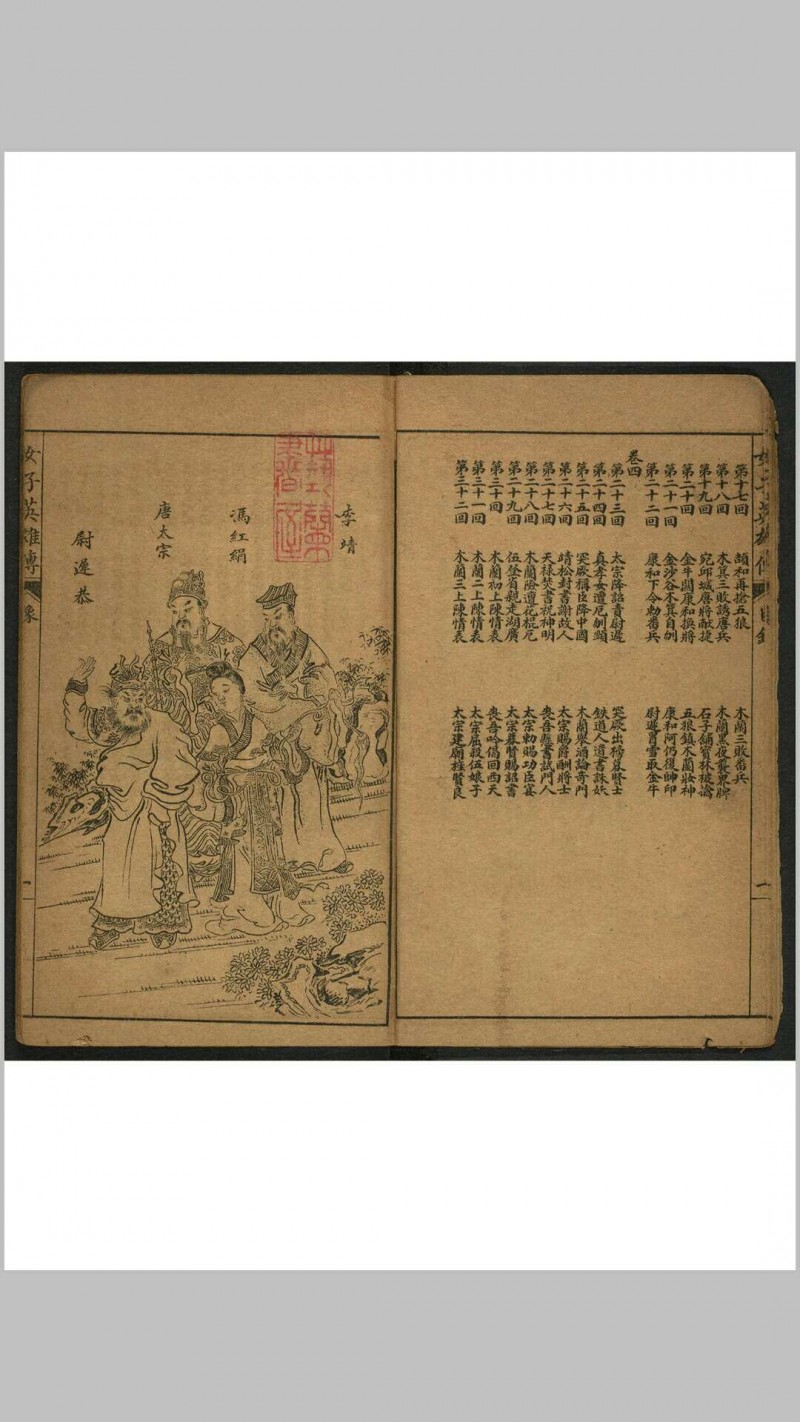 第十七回 頡和再搶五狼 木蘭三敗番兵
第十八回 木真三敗誘唐兵 木蘭黑夜襲東牌
第十九回 宛邱城唐將献捷 石子鋪賀林被擒
第二十回 金牛關康和換將 五狼鎮木蘭妝神
第二十一回 金沙谷木真自刎 康和阿仍復帥印
第二十二回 康和下令勅番兵 尉遲冒雪取金牛
卷四
第二十三回 太宗降詔責尉遲 突厥出榜募賢士
第二十四回 真孝女遭厄刖頞 鉄道人遺書誅妖
第二十五回 突厥稱臣降中國 木蘭舉酒論奇門
第二十六回 靖松封書謝故人 太宗賜爵酬將士
第二十七回 天祿焚書祝神明 喪吾懸書試門人
第二十八回 木蘭陵遭花棍厄 太宗勅賜功臣宴
第二十九回 伍登省親走湖廣 太宗募賢賜詔書
第三十回 木蘭初上陳情表 喪吾吟偈回西天
第三十一回 木蘭二上陳情表 太宗屈殺伍娘子
第三十二回 木蘭三上陳情表 太宗建廟旌賢良
二
李靖
馮紅絹
唐太宗
尉遲恭
女子英雄傳
象
二